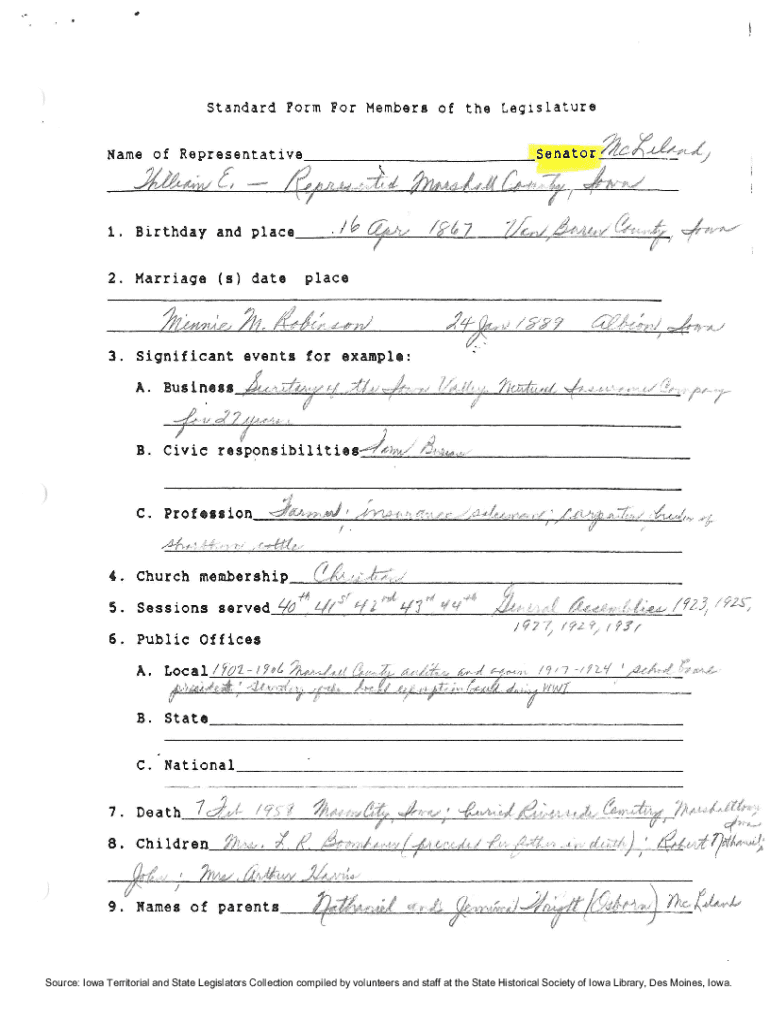 Standard Form For Members of the Legislature
Name of Representative Senator McLeland,
William E. — Represented Marshall County, Iowa
1. Birthday and place 16 Apr 1867 Van Buren County, Iowa
2. Marriage (s) date place
Minnie M. Robinson 24 Jan 1889 Albion, Iowa
3. Significant events for example:
A. Business Secretary of the Iowa Valley Mutual Insurance Company
for 27 years.
B. Civic responsibilities Farm Bureau
C. Profession Farmer; insurance salesman; carpenter; breeder of
shorthorn cattle
4. Church membership Christian
5. Sessions served 40th, 41st, 42nd, 43rd, 44th General Assemblies 1923, 1925,
1927, 1929, 1931
6. Public Offices
A. Local 1902-1906 Marshall County auditor and again 1917-1924; school board
president; Secretary of the local exemption board during WWI
B. State
C. National
7. Death 7 Feb 1959 Mason City, Iowa; buried Riverside Cemetery, Marshalltown,
Iowa
8. Children Mrs. L. R. Boomhower (preceded her father in death); Robert Nathaniel;
John; Mrs. Arthur Harris
9. Names of parents Nathaniel and Jemima Wright (Osborn) McLeland
Source: Iowa Territorial and State Legislators Collection compiled by volunteers and staff at the State Historical Society of Iowa Library, Des Moines, Iowa.